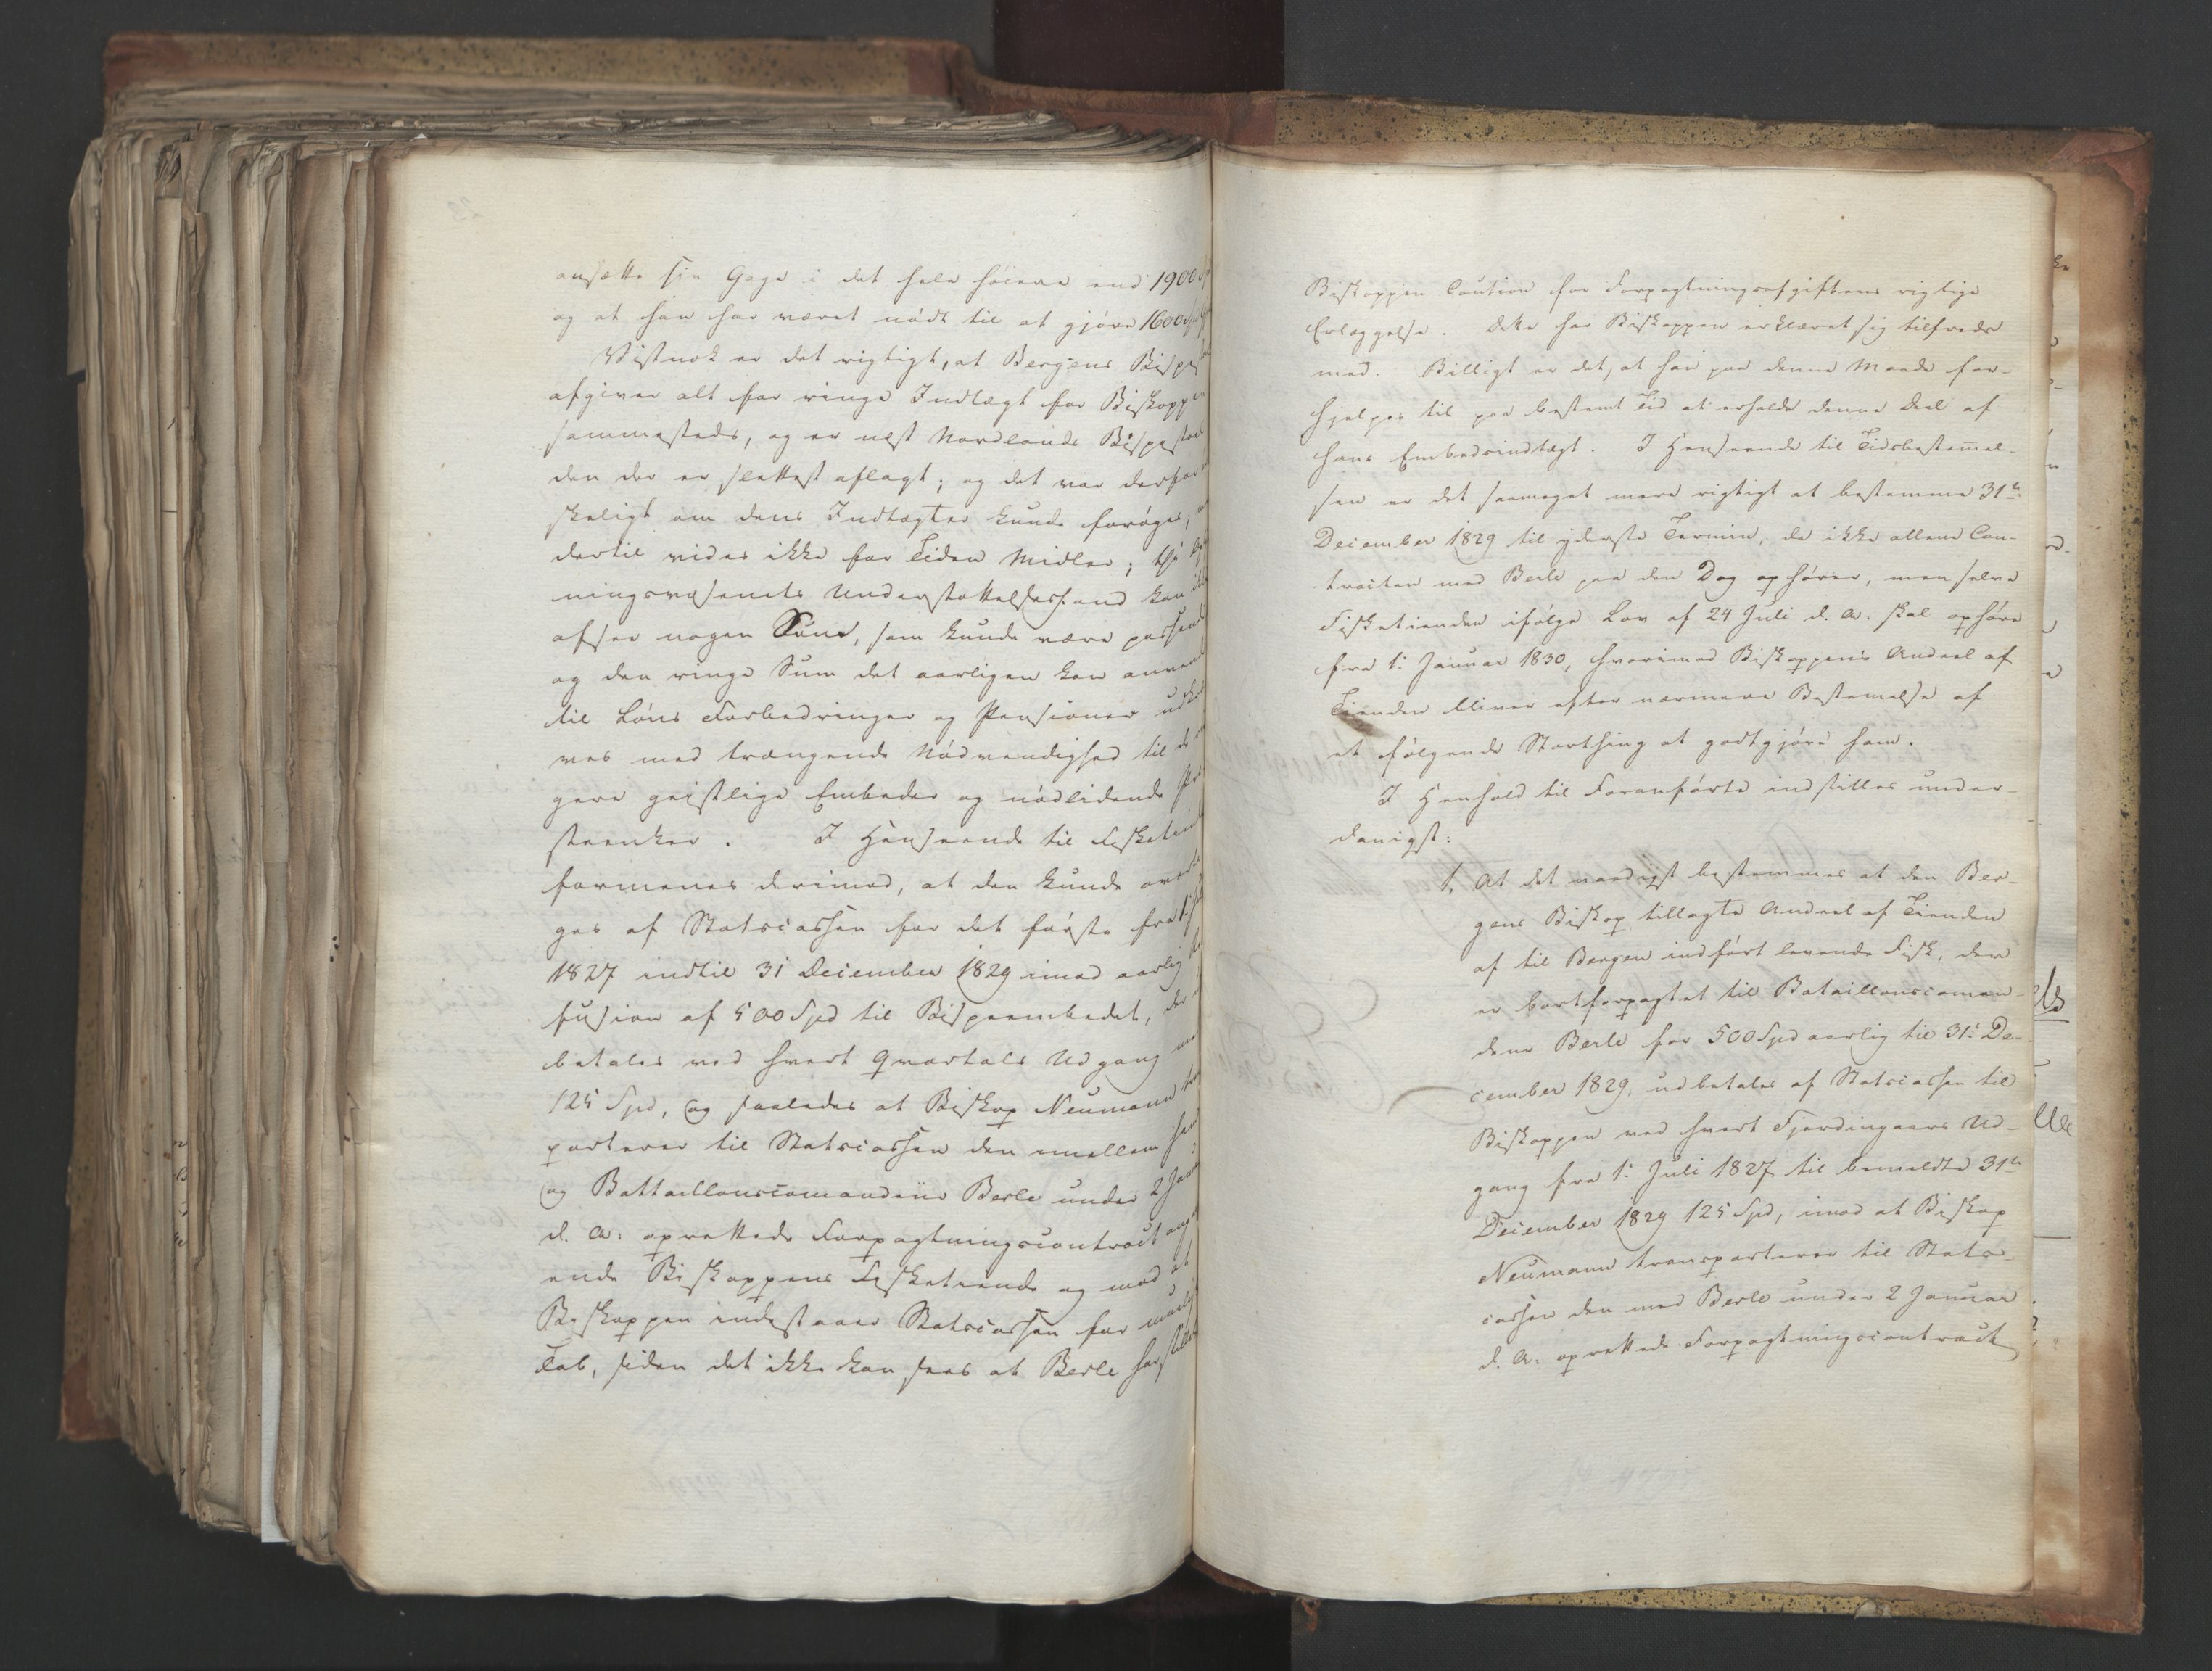 ansætte sin Gage i det hele høiere end 1900
og at han har været nødt til at gjøre 1600
Vistnok er det rigtigt, at Bergens Bispe
afgiver alt for ringe Indtægt for Biskoppen
sammesteds, og er næst Nordlands Bispestoel
den der er slettest aflagt; og det var derfor
skeligt om dens Indtægter kunde forøges;
dertil vides ikke for Tiden Midler; thi
ningsvæsenets Understøttelsesfond kan ikke
afsee nogen Sum, som kunde være passende
og den ringe Sum det aarligen kan anvende
til Løns Forbedringer og Pensioner
ves med trængende Nødvendighed til de
gere geistlige Embeder og nødlidende
Præsteenker. I Henseende til Fisketiende
formenes derimod, at den kunde
ges af Statscassen for det første fra 1:
1827 indtil 31 December 1829 imod aarlig
fusion af 500 Spd til Bispeembedet, der
betales ved hvert Qvartals Udgang med
125 Spd, og saaledes at Biskop Neumann
porterer til Statscassen den imellem ham
og Battaillonscomandeur Berle under 2 Januar
d. A: oprettede Forpagtningscontract
ende Biskoppens Fisketiende og mod at
Biskoppen indestaaer Statscassen for muligt
Tab, siden det ikke kan sees at Berle har stillet
Biskoppen Caution for Forpagtningsafgiftens rigtige
Erlæggelse. Dette har Biskoppen erklæret sig tilfreds
med. Billigt er det, at han paa denne Maade for-
hjelpes til paa bestemt Tid at erholde denne Deel af
hans Embedsindtægt. I Henseende til Tidsbestemel-
sen er det saameget mere rigtigt at bestemme 31te
December 1829 til yderste Termin, da ikke allene Con-
tracten med Berle paa den Dag ophører, men selve
Fisketienden ifølge Lov af 24 Juli d. A: skal ophøre
fra 1: Januar 1830, hvorimod Biskoppens Andeel af
Tienden bliver efter nærmere Bestemelse af
et følgende Storthing at godtgjøre ham.
I Henhold til Foranførte indstilles under-
danigst:
1, At det naadigst bestemmes at den Ber-
gens Biskop tillagte Andeel af Tienden
af til Bergen indført levende Fisk, der
er bortforpagtet til Bataillonscoman-
deur Berle for 500 Spd aarlig til 31: De-
cember 1829, udbetales af Statscassen til
Biskoppen ved hvert Fjerdingaars Ud-
gang fra 1: Juli 1827 til bemeldte 31te
December 1829 125 Spd, imod at Biskop
Neumann transporterer til Stats-
cassen den med Berle under 2 Januar
d. A: oprettede Forpagtningscontract